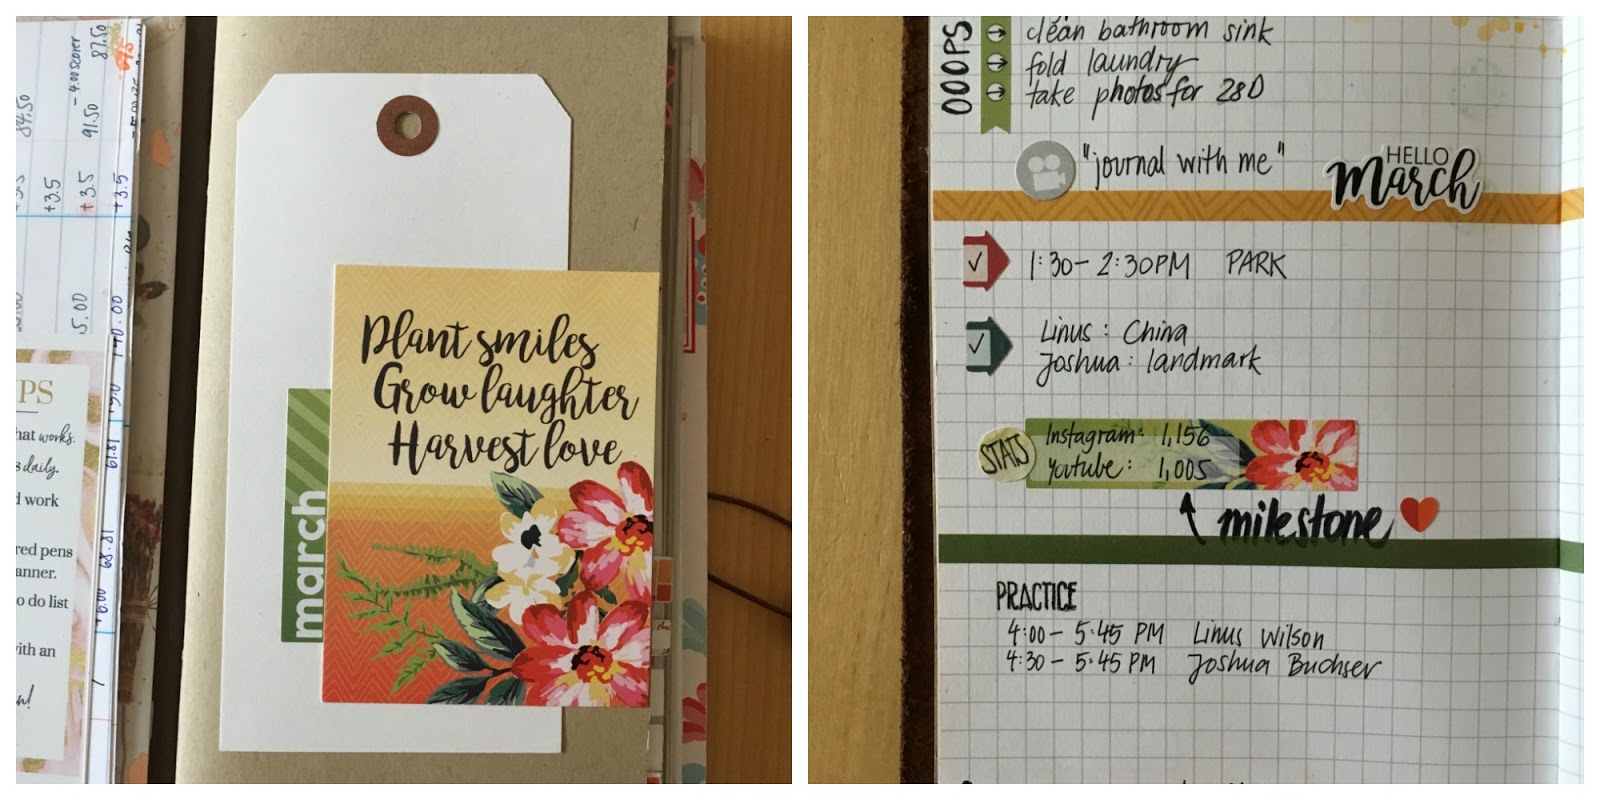 84.50
+3.5
- 4.00 scorer
91.50
+3.5
87.50
+3.5
5.00
140.00
61.81
68.81
+6.00
PS
hat works.
s daily.
d work
red pens
anner.
o do list
with an
n!
march
Plant smiles
Grow laughter
Harvest love
OOOPS
clean bathroom sink
fold laundry
take photos for 28D
"journal with me"
HELLO
March
1:30 - 2:30PM PARK
Linus: China
Joshua: landmark
STATS
Instagram: 1,156
Youtube: 1,005
milestone
PRACTICE
4:00 - 5:45 PM Linus Wilson
4:30 - 5:45 PM Joshua Buchser